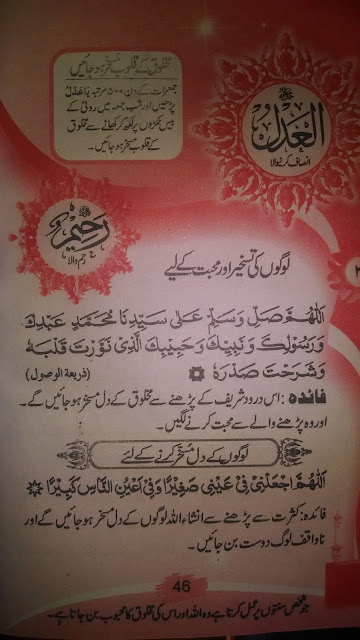 مخلوق کے قلوب مُسَخَّر ہو جائیں
جمعرات کے دن ۵۰۰ مرتبہ یَا عَدْلُ
پڑھیں اور شب جمعہ میں روٹی کے
بیس ٹکڑوں پر لکھ کر کھانے سے مخلوق
کے قلوب مسخر ہو جائیں۔
العدل
انصاف کرنیوالا
رحیم
رحم والا
لوگوں کی تسخیر اور محبت کے لیے
اَللّٰهُمَّ صَلِّ وَسَلِّمْ عَلٰی سَیِّدِنَا مُحَمَّدٍ عَبْدِكَ
وَرَسُوْلِكَ وَنَبِیِّكَ وَحَبِیْبِكَ الَّذِیْ نَوَّرْتَ قَلْبَهٗ
وَشَرَحْتَ صَدْرَهٗ (ذریعۃ الوصول)
فائدہ: اس درود شریف کے پڑھنے سے مخلوق کے دل مسخر ہو جائیں گے۔
اور وہ پڑھنے والے سے محبت کرنے لگیں۔
لوگوں کے دل مُسَخَّر کرنے کے لئے
اَللّٰهُمَّ اجْعَلْنِیْ فِیْ عَیْنِیْ صَغِیْرًا وَّفِیْ اَعْیُنِ النَّاسِ کَبِیْرًا
فائدہ: کثرت سے پڑھنے سے انشاء اللہ لوگوں کے دل مسخر ہو جائیں گے اور
ناواقف لوگ دوست بن جائیں۔
46
جو شخص سنتوں پر عمل کرتا ہے وہ اللہ اور اس کی مخلوق کا محبوب بن جاتا ہے۔